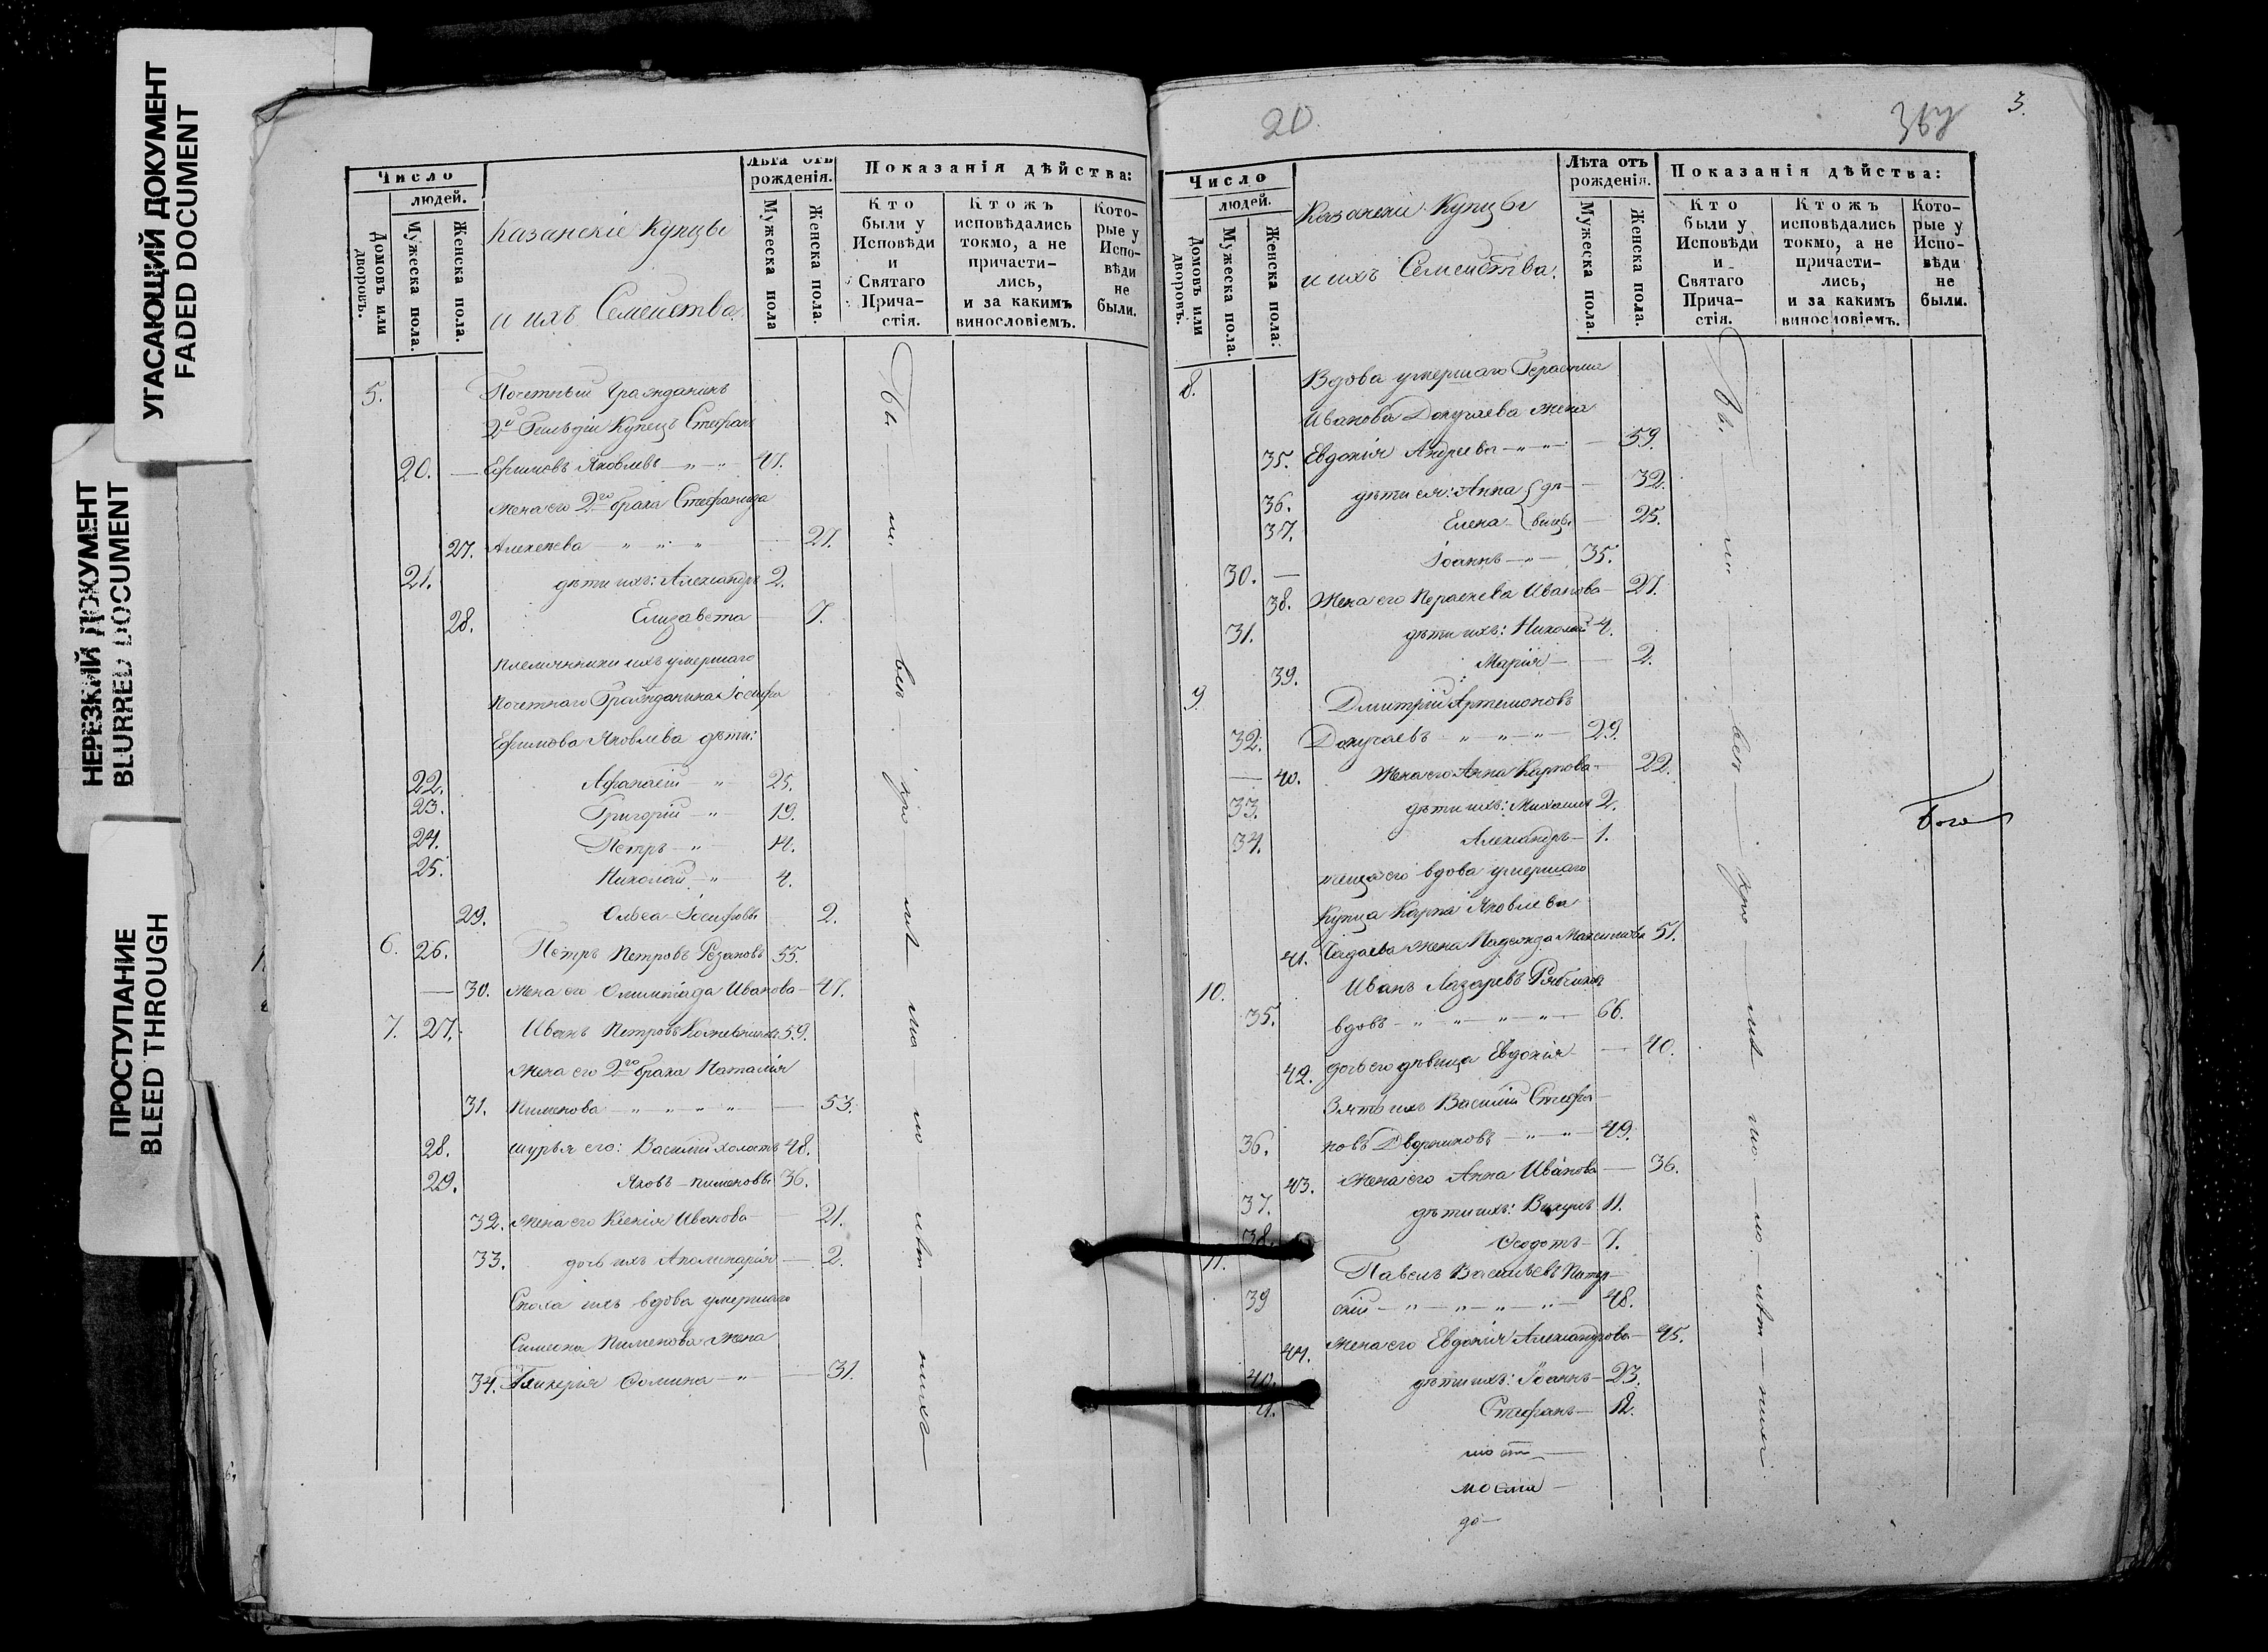 УГАСАЮЩИЙ ДОКУМЕНТ
FADED DOCUMENT
НЕРЕЗКИЙ ДОКУМЕНТ
BLURRED DOCUMENT
ПРОСТУПАНИЕ
BLEED THROUGH
Число
людей.
Домовъ или дворовъ.
Мужеска пола.
Женска пола.
Казанскіе Купцы
и ихъ Семейства.
Лѣта отъ
рожденія.
Мужеска пола
Женска пола.
Показанія дѣйства:
Кто
были у
Исповѣди
и
Святаго
Прича-
стія.
Ктожъ
исповѣдались
токмо, а не
причасти-
лись,
и за какимъ
винословіемъ.
Кото-
рые у
Испо-
вѣди
не
были.
5. Почетный Гражданинъ
2й Гильдіи Купецъ Стефанъ
20. — Ефимовъ Яковлевъ — „ — „ 47.
жена его 2го брака Стефанида
27. Алексѣева — „ „ „ — 27.
21. дѣти ихъ: Александръ 2.
28. Елизавета — 7.
племянники ихъ умершаго
Почетнаго Гражданина Іосифа
Ефимова Яковлева дѣти:
22. Афанасій — „ 25.
23. Григорій — „ 19.
24. Петръ — „ 14.
25. Николай — „ 4.
29. Ольга Іосифовы 2.
6. 26. Петръ Петровъ Рѣзановъ 55.
— 30. жена его Олимпіада Иванова — 47.
7. 27. Иванъ Петровъ Кожевниковъ 59.
жена его 2го брака Наталія
31. Пименова — „ „ „ „ — 53.
28. шурья его: Василій холостъ 48.
29. Яковъ — Пименовы 36.
32. жена его Ксенія Иванова — 21.
33. дочь ихъ Аполинарія — 2.
Сноха ихъ вдова умершаго
Симеона Пименова жена
34. Гликерія Ѳомина — „ — 31.
20
3.
Число
людей.
Домовъ или дворовъ.
Мужеска пола.
Женска пола.
Казанскіе Купцы
и ихъ Семейства.
Лѣта отъ
рожденія.
Мужеска пола.
Женска пола.
Показанія дѣйства:
Кто
были у
Исповѣди
и
Святаго
Прича-
стія.
Ктожъ
исповѣдались
токмо, а не
причасти-
лись,
и за какимъ
винословіемъ.
Кото-
рые у
Испо-
вѣди
не
были.
8. Вдова умершаго Герасима
Иванова Докучаева жена
35. Евдокія Андреева — „ — „ — 59.
36. дѣти ея: Анна } дѣ — 32.
37. Елена } вицы — 25.
30. — Іоаннъ — „ — 35.
38. Жена его Параскева Иванова — 27.
31. дѣти ихъ: Николай 4.
39. Марія — 2.
9. Дмитрій Артемоновъ
32. Докучаевъ „ — „ — „ — 29.
— 40. Жена его Анна Карпова — 22.
33. дѣти ихъ: Михаилъ 2.
34. Александръ — 1.
теща его вдова умершаго
Купца Карпа Яковлева
41. жена Надежда Максимова 51.
10. Иванъ Лазаревъ
35. вдовъ — „ — „ — „ — „ — 66.
42. дочь его дѣвица Евдокія — 40.
Зять ихъ Василій Стефа-
36. новъ Дворниковъ — „ — „ — 49.
43. Жена его Анна Иванова — 36.
37. дѣти ихъ: Викулъ 11.
38. Ѳеодотъ — 7.
11. Павелъ Васильевъ
39 скій — „ — „ — „ — „ — 48.
44. жена его Евдокія Александрова — 45.
40. дѣти ихъ: Іоаннъ — 23.
41. — Стефанъ — 12.